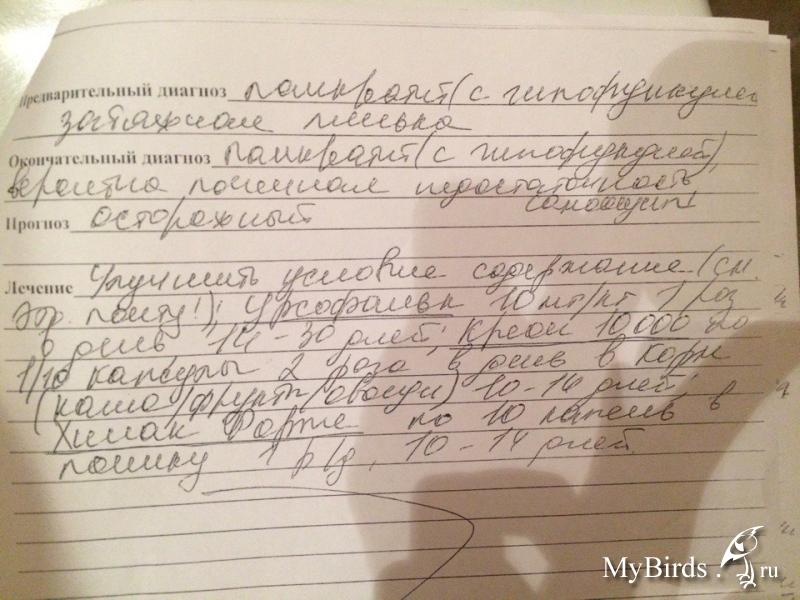 Предварительный диагноз панкреатит (с гипофункцией
затяжная линька
Окончательный диагноз панкреатит (с гипофункцией)
вероятна печеночная недостаточность,
Прогноз осторожный
Лечение Улучшить условие содержание (см.
эл. почту!); Урсофальк 10 мг/кг 1 раз
в день 14-30 дней; Креон 10 000 по
1/10 капсулы 2 раза в день в корм
(каша/фрукты/овощи) 10-14 дней;
Хилак Форте по 10 капель в
поилку 1 р/д, 10-14 дней.
MyBirds.ru